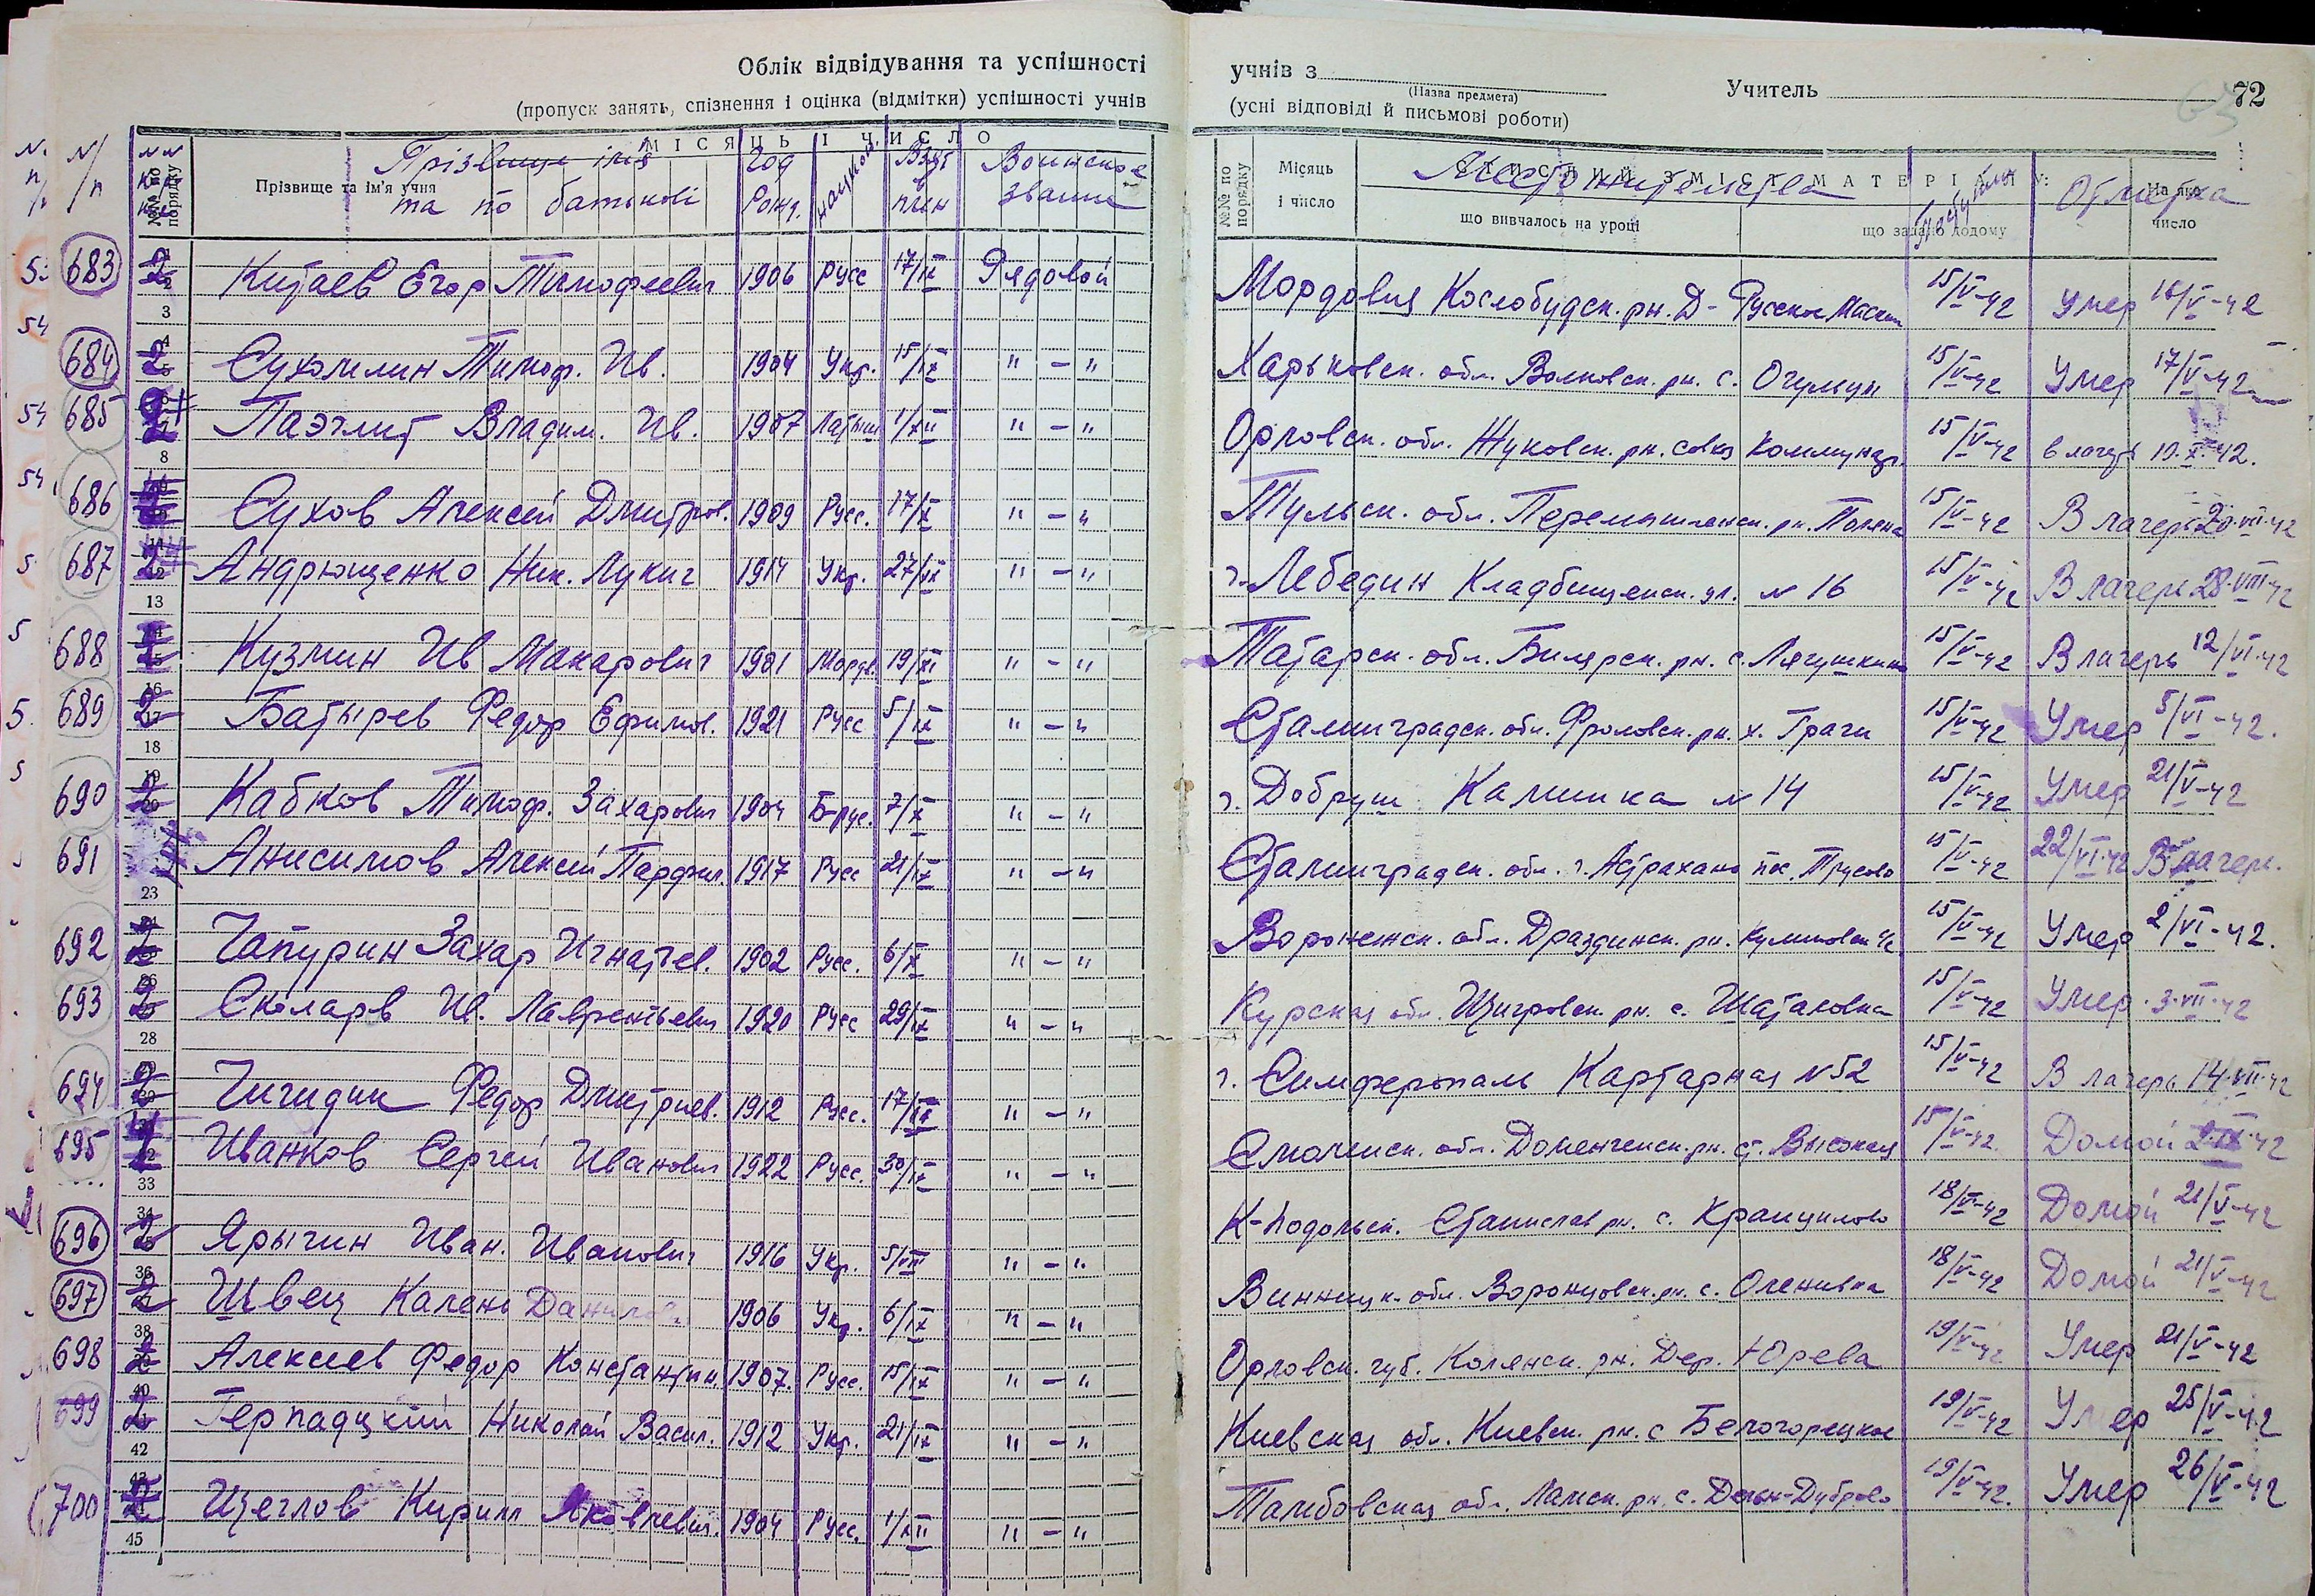 Облік відвідування та успішності
(пропуск занять, спізнення і оцінка (відмітки) успішності учнів
МІСЯЦЬ І ЧИСЛО
№№ по порядку
Прізвище та ім'я учня
Прізвище імя та по батькові
Год Рожд.
национ.
Взят в плен
Воинское звание
учнів з
(Назва предмета)
Учитель
72
(усні відповіді й письмові роботи)
№№ по порядку
Місяць і число
СТИСЛИЙ ЗМІСТ МАТЕРІАЛУ:
що вивчалось на уроці
що задано додому
На яке число
Местожительства
Прибытия
Отметка
683 Китаев Егор Тимофеевич 1906 Русс 17/IX Рядовой Мордовия Кослобудск. рн. Д- Русское Маскин 15/V-42 Умер 16/V-42
684 Сухомлин Тимоф. Ив. 1904 Укр. 15/IX " - " Харьковск. обл. Волковск. рн. с. Огульцы 15/V-42 Умер 17/V-42
685 Паэглит Владим. Ив. 1907 Латыш 1/XII " - " Орловск. обл. Жуковск. рн. совхоз Коммунар. 15/V-42 в лагерь 10.X.42.
686 Сухов Алексей Дмитров. 1909 Русс. 17/X " - " Тульск. обл. Перемышленск. рн. Поляна 15/V-42 В лагерь 20.VII.42
687 Андрющенко Ник. Лукич 1914 Укр. 27/IX " - " г. Лебедин Кладбищенск. ул. № 16 15/V-42 В лагерь 28.VIII.42
688 Кузмин Ив Макарович 1901 Мордв. 19/XI " - " Татарск. обл. Билярск. рн. с. Лягушкино 15/V-42 В лагерь 12/VI.42
689 Батырев Федор Ефимов. 1921 Русс 5/IX " - " Сталинградск. обл. Фроловск. рн. х. Грачи 15/V-42 Умер 5/VI-42.
690 Кабков Тимоф. Захарович 1904 Б-рус. 7/X " - " г. Добруш Калинина № 14 15/V-42 Умер 21/V-42
691 Анисимов Алексей Парфил. 1917 Русс 21/IX " - " Сталинградск. обл. г. Астрахань пос. Трусово 15/V-42 22/VI.42 В лагерь.
692 Чапурин Захар Игнатьев. 1902 Русс. 6/X " - " Воронежск. обл. Драздинск. рн. Куликовск 15/V-42 Умер 2/VI-42.
693 Сколарв Ив. Лаврентьевич 1920 Русс 29/IX " - " Курская обл. Щигровск. рн. с. Шаталовка 15/V-42 Умер. 3.VII.42
694 Чигидин Федор Дмитриев. 1912 Русс. 17/IX " - " г. Симферопаль Картарная № 52 15/V-42 В лагерь 14.VII.42
695 Иванков Сергей Иванович 1922 Русс. 30/IX " - " Смоленск. обл. рн. ст. Высокая 15/V-42. Домой 2.IX.42
696 Ярычин Иван. Иванович 1916 Укр. 5/VIII " - " К-подольск. Станислав рн. с. 18/V-42 Домой 21/V-42
697 Швец Калень Данилов 1906 Укр. 6/IX " - " Винницк. обл. Воронцовск. рн. с. Оленивка 18/V-42 Домой 21/V-42
698 Алексеев Федор Константин. 1907. Русс. 15/IX " - " Орловск. губ. рн. Дер. Юрева 19/V-42 Умер 21/V-42
699 Герпадцкий Николай Васил. 1912 Укр. 21/IX " - " Киевская обл. Киевск. рн. с Белогорецкое 19/V-42 Умер 25/V-42
700 Щеглов Кирилл Яковлевич. 1904 Русс. 1/XII " - " Тамбовская обл. Ламск. рн. с. 19/V-42. Умер 26/V-42